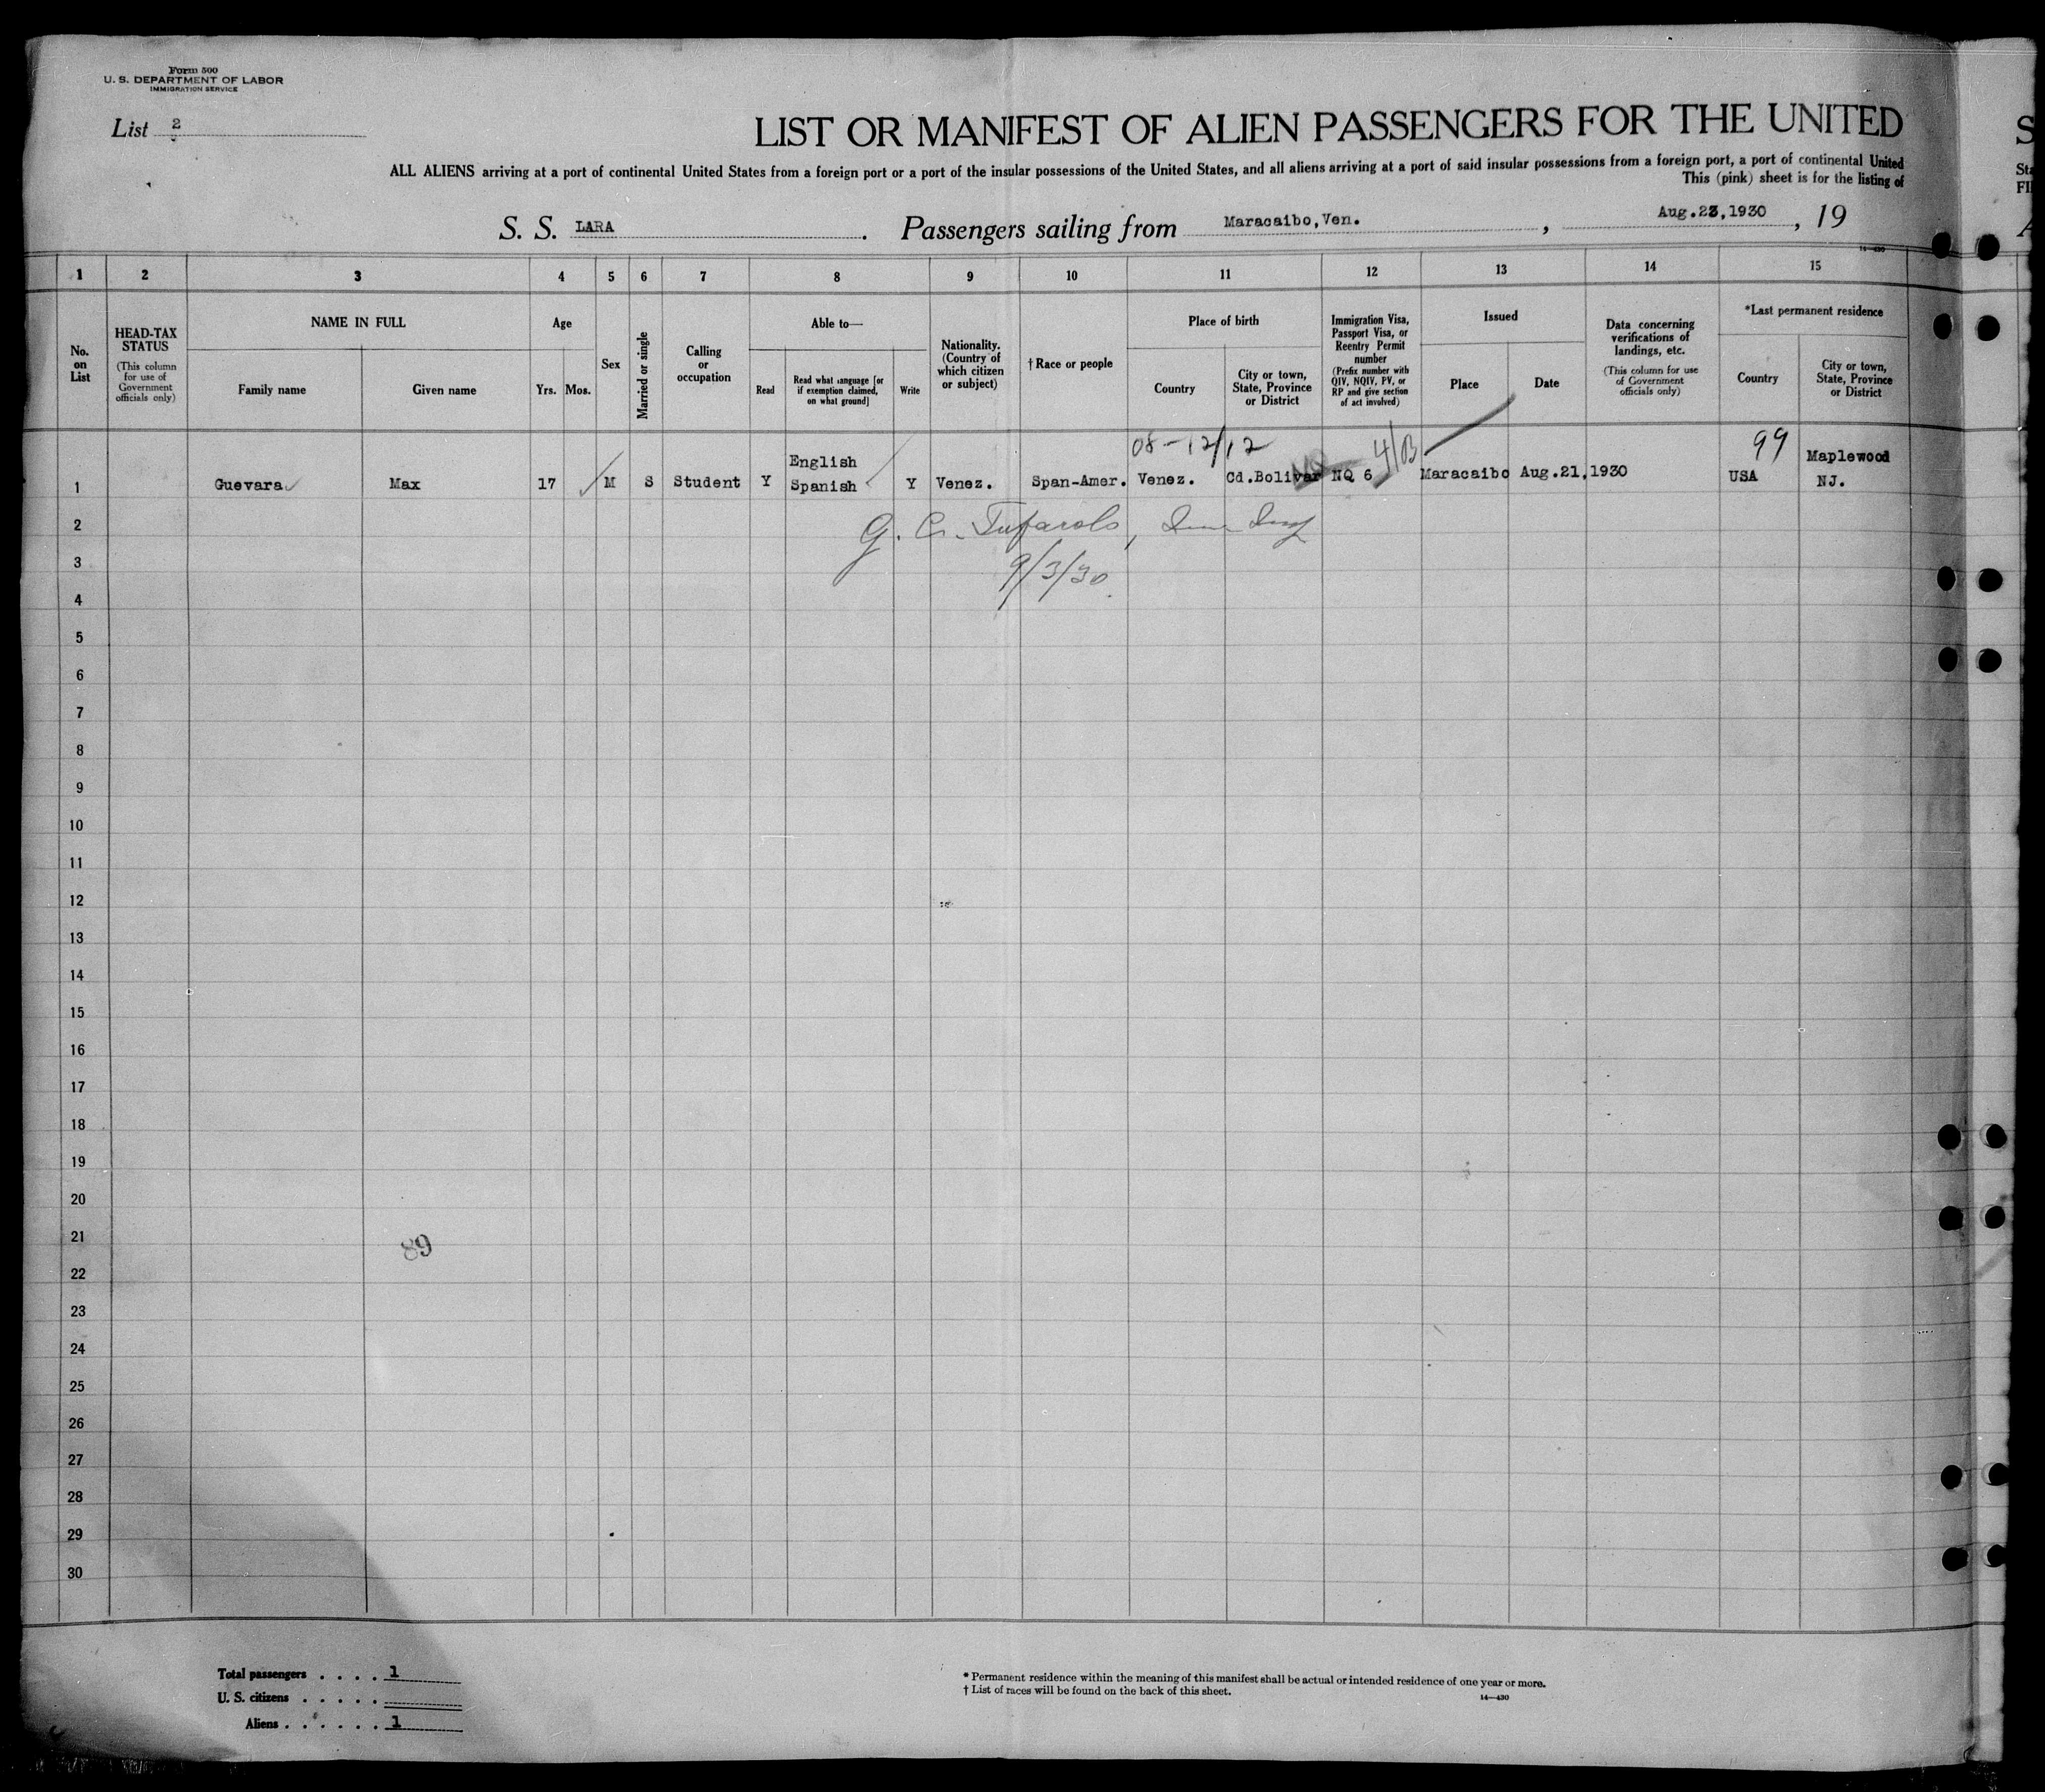 Form 500
U. S. DEPARTMENT OF LABOR
IMMIGRATION SERVICE
List 2
LIST OR MANIFEST OF ALIEN PASSENGERS FOR THE UNITED
ALL ALIENS arriving at a port of continental United States from a foreign port or a port of the insular possessions of the United States, and all aliens arriving at a port of said insular possessions from a foreign port, a port of continental United
This (pink) sheet is for the listing of
S. S. LARA . Passengers sailing from Maracaibo,Ven. , Aug.23,1930 , 19
14—430
1 2 3 4 5 6 7 8 9 10 11 12 13 14 15
No. on List
HEAD-TAX STATUS
(This column for use of Government officials only)
NAME IN FULL
Family name
Given name
Age
Yrs. Mos.
Sex
Married or single
Calling or occupation
Able to—
Read
Read what language [or if exemption claimed, on what ground]
Write
Nationality. (Country of which citizen or subject)
† Race or people
Place of birth
Country
City or town, State, Province or District
Immigration Visa, Passport Visa, or Reentry Permit number
(Prefix number with QIV, NQIV, PV, or RP and give section of act involved)
Issued
Place
Date
Data concerning verifications of landings, etc.
(This column for use of Government officials only)
*Last permanent residence
Country
City or town, State, Province or District
08-12/12 4/B 99
1 Guevara Max 17 M S Student Y English Spanish Y Venez. Span-Amer. Venez. Cd.Bolivar NQ 6 Maracaibo Aug.21,1930 USA Maplewood NJ.
2
9/3/30
3
4
5
6
7
8
9
10
11
12
13
14
15
16
17
18
19
20
21
89
22
23
24
25
26
27
28
29
30
Total passengers . . . . 1
U. S. citizens . . . . .
Aliens . . . . . . 1
* Permanent residence within the meaning of this manifest shall be actual or intended residence of one year or more.
† List of races will be found on the back of this sheet.
14—430